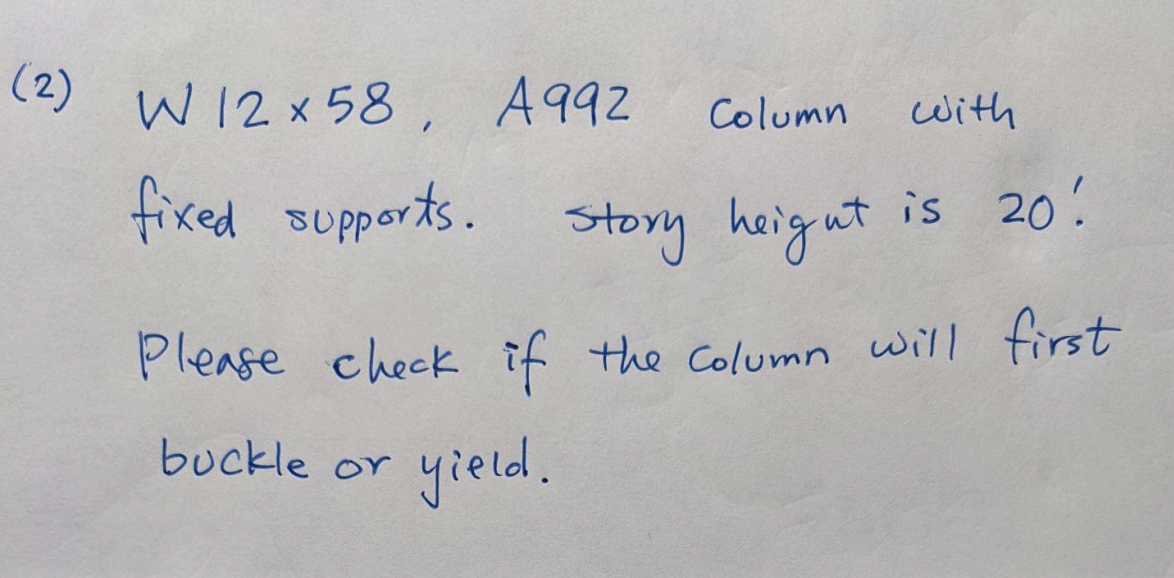 (2) W 12 x 58, A992 Column with
fixed supports. Story heignt is 20'.
Please check if the column will first
buckle or yield.